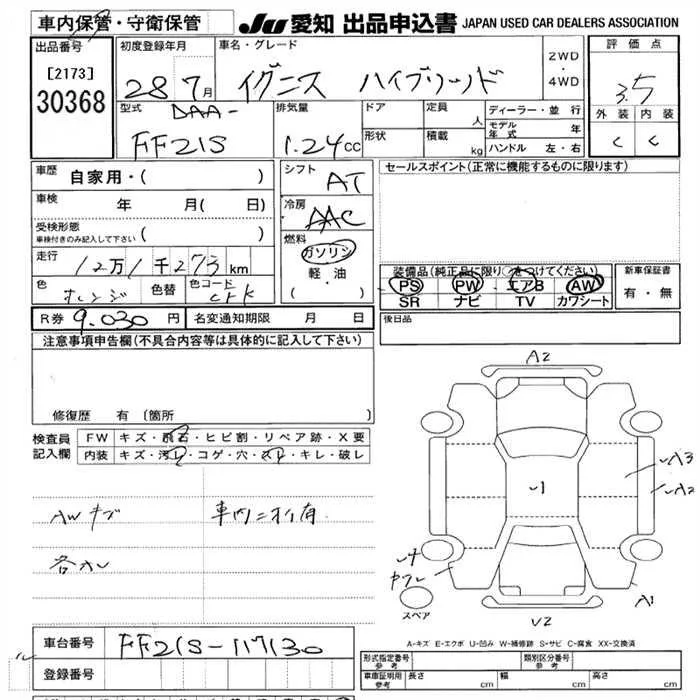 車内保管・守衛保管
JU 愛知 出品申込書 JAPAN USED CAR DEALERS ASSOCIATION
出品番号
[2173]
30368
初度登録年月
28 7月
車名・グレード
イグニス ハイブリッド
2WD
・
4WD
評価点
3.5
外装 内装
C C
型式
DAA-
FF21S
排気量
1.24cc
ドア
定員
人
形状
積載
kg
ディーラー・並行
モデル年式 年
ハンドル 左・右
車歴
自家用・( )
車検
年 月( 日)
受検形態
車検付きのみ記入して下さい ( )
走行
12万1千273km
色
オレンジ
色替
色コード
シフト
AT
冷房
AAC
燃料
ガソリン
軽・油
・( )
セールスポイント(正常に機能するものに限ります)
装備品(純正品に限り○をつけてください)
PS PW エアB AW
SR ナビ TV カワシート
新車保証書
有・無
R券 9.030円
名変通知期限 月 日
後日品
注意事項申告欄(不具合内容等は具体的に記入して下さい)
修復歴 有 〔箇所
検査員
記入欄
FW キズ・飛石・ヒビ割・リペア跡・X要
内装 キズ・汚れ・コゲ・穴・スレ・キレ・破レ
AWキズ
車内ニオイ有
A2
A3
A2
A1
U2
スペア
A-キズ E-エクボ U-凹み W-補修跡 S-サビ C-腐食 XX-交換済
車台番号
FF21S-117130
登録番号
形式指定番号
参考
類別区分番号
参考
車庫証明用
参考
長さ cm
幅 cm
高さ cm